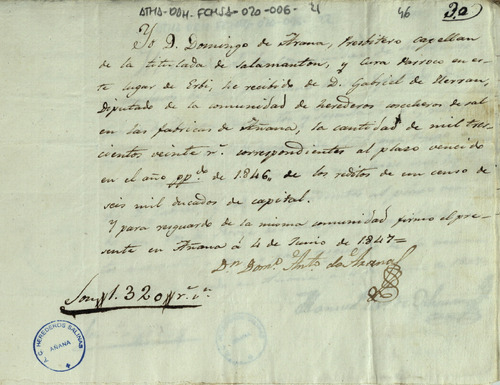 ATHA-DAH-FCMSA-020-006-21
46
30
Yo D. Domingo de Arana, Presbitero capellan
de la titulada de Salamanton, y Cura Parroco en es-
te lugar de Orbi, he recibido de D. Gabriel de Herran,
Diputado de la comunidad de herederos cosecheros de sal
en las fabricas de Añana, la cantidad de mil tres-
cientos veinte r.s correspondientes al plazo vencido
en el año pp.do de 1846, de los reditos de un censo de
seis mil ducados de capital.
Y para resguardo de la misma comunidad firmo el pre-
sente en Añana á 4 de Junio de 1847=
Dn Dom.o Ant.o de Arana
Son 1.320 r.s v.n
HEREDEROS SALINAS
AÑANA